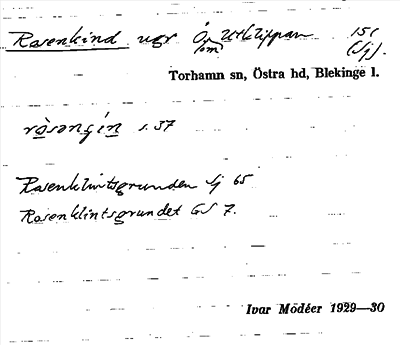 Rosenkind ugr Ö om Utklippan 151
(Sj).
Torhamn sn, Östra hd, Blekinge l.
ròsəngín s. 37
Rosenklintsgrunden Sj 65
Rosenklintsgrundet GS 7.
Ivar Modéer 1929—30